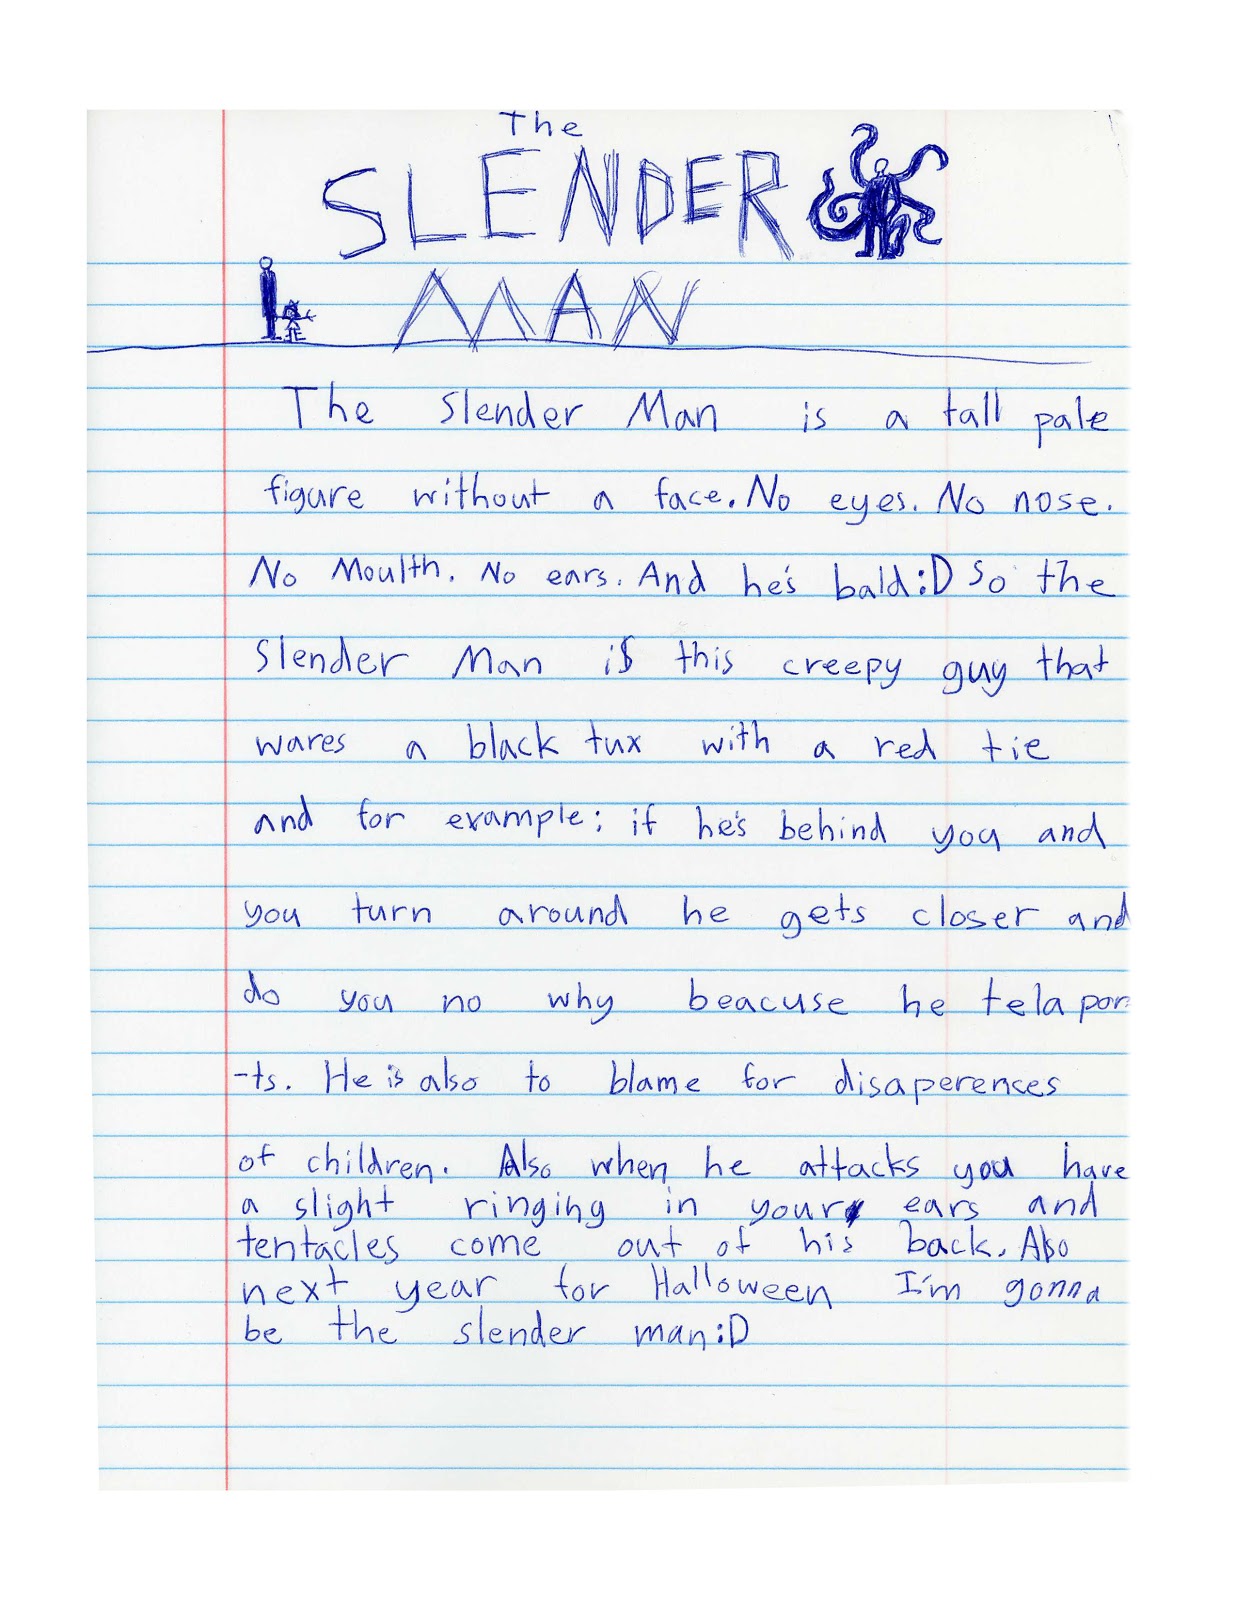 The
SLENDER
MAN
The Slender Man is a tall pale
figure without a face. No eyes. No nose.
No Moulth. No ears. And he's bald :D So the
Slender Man is this creepy guy that
wares a black tux with a red tie
and for example; if he's behind you and
you turn around he gets closer and
do you no why beacuse he telapor
-ts. He is also to blame for disaperences
of children. Also when he attacks you have
a slight ringing in your ears and
tentacles come out of his back. Also
next year for Halloween I'm gonna
be the slender man :D